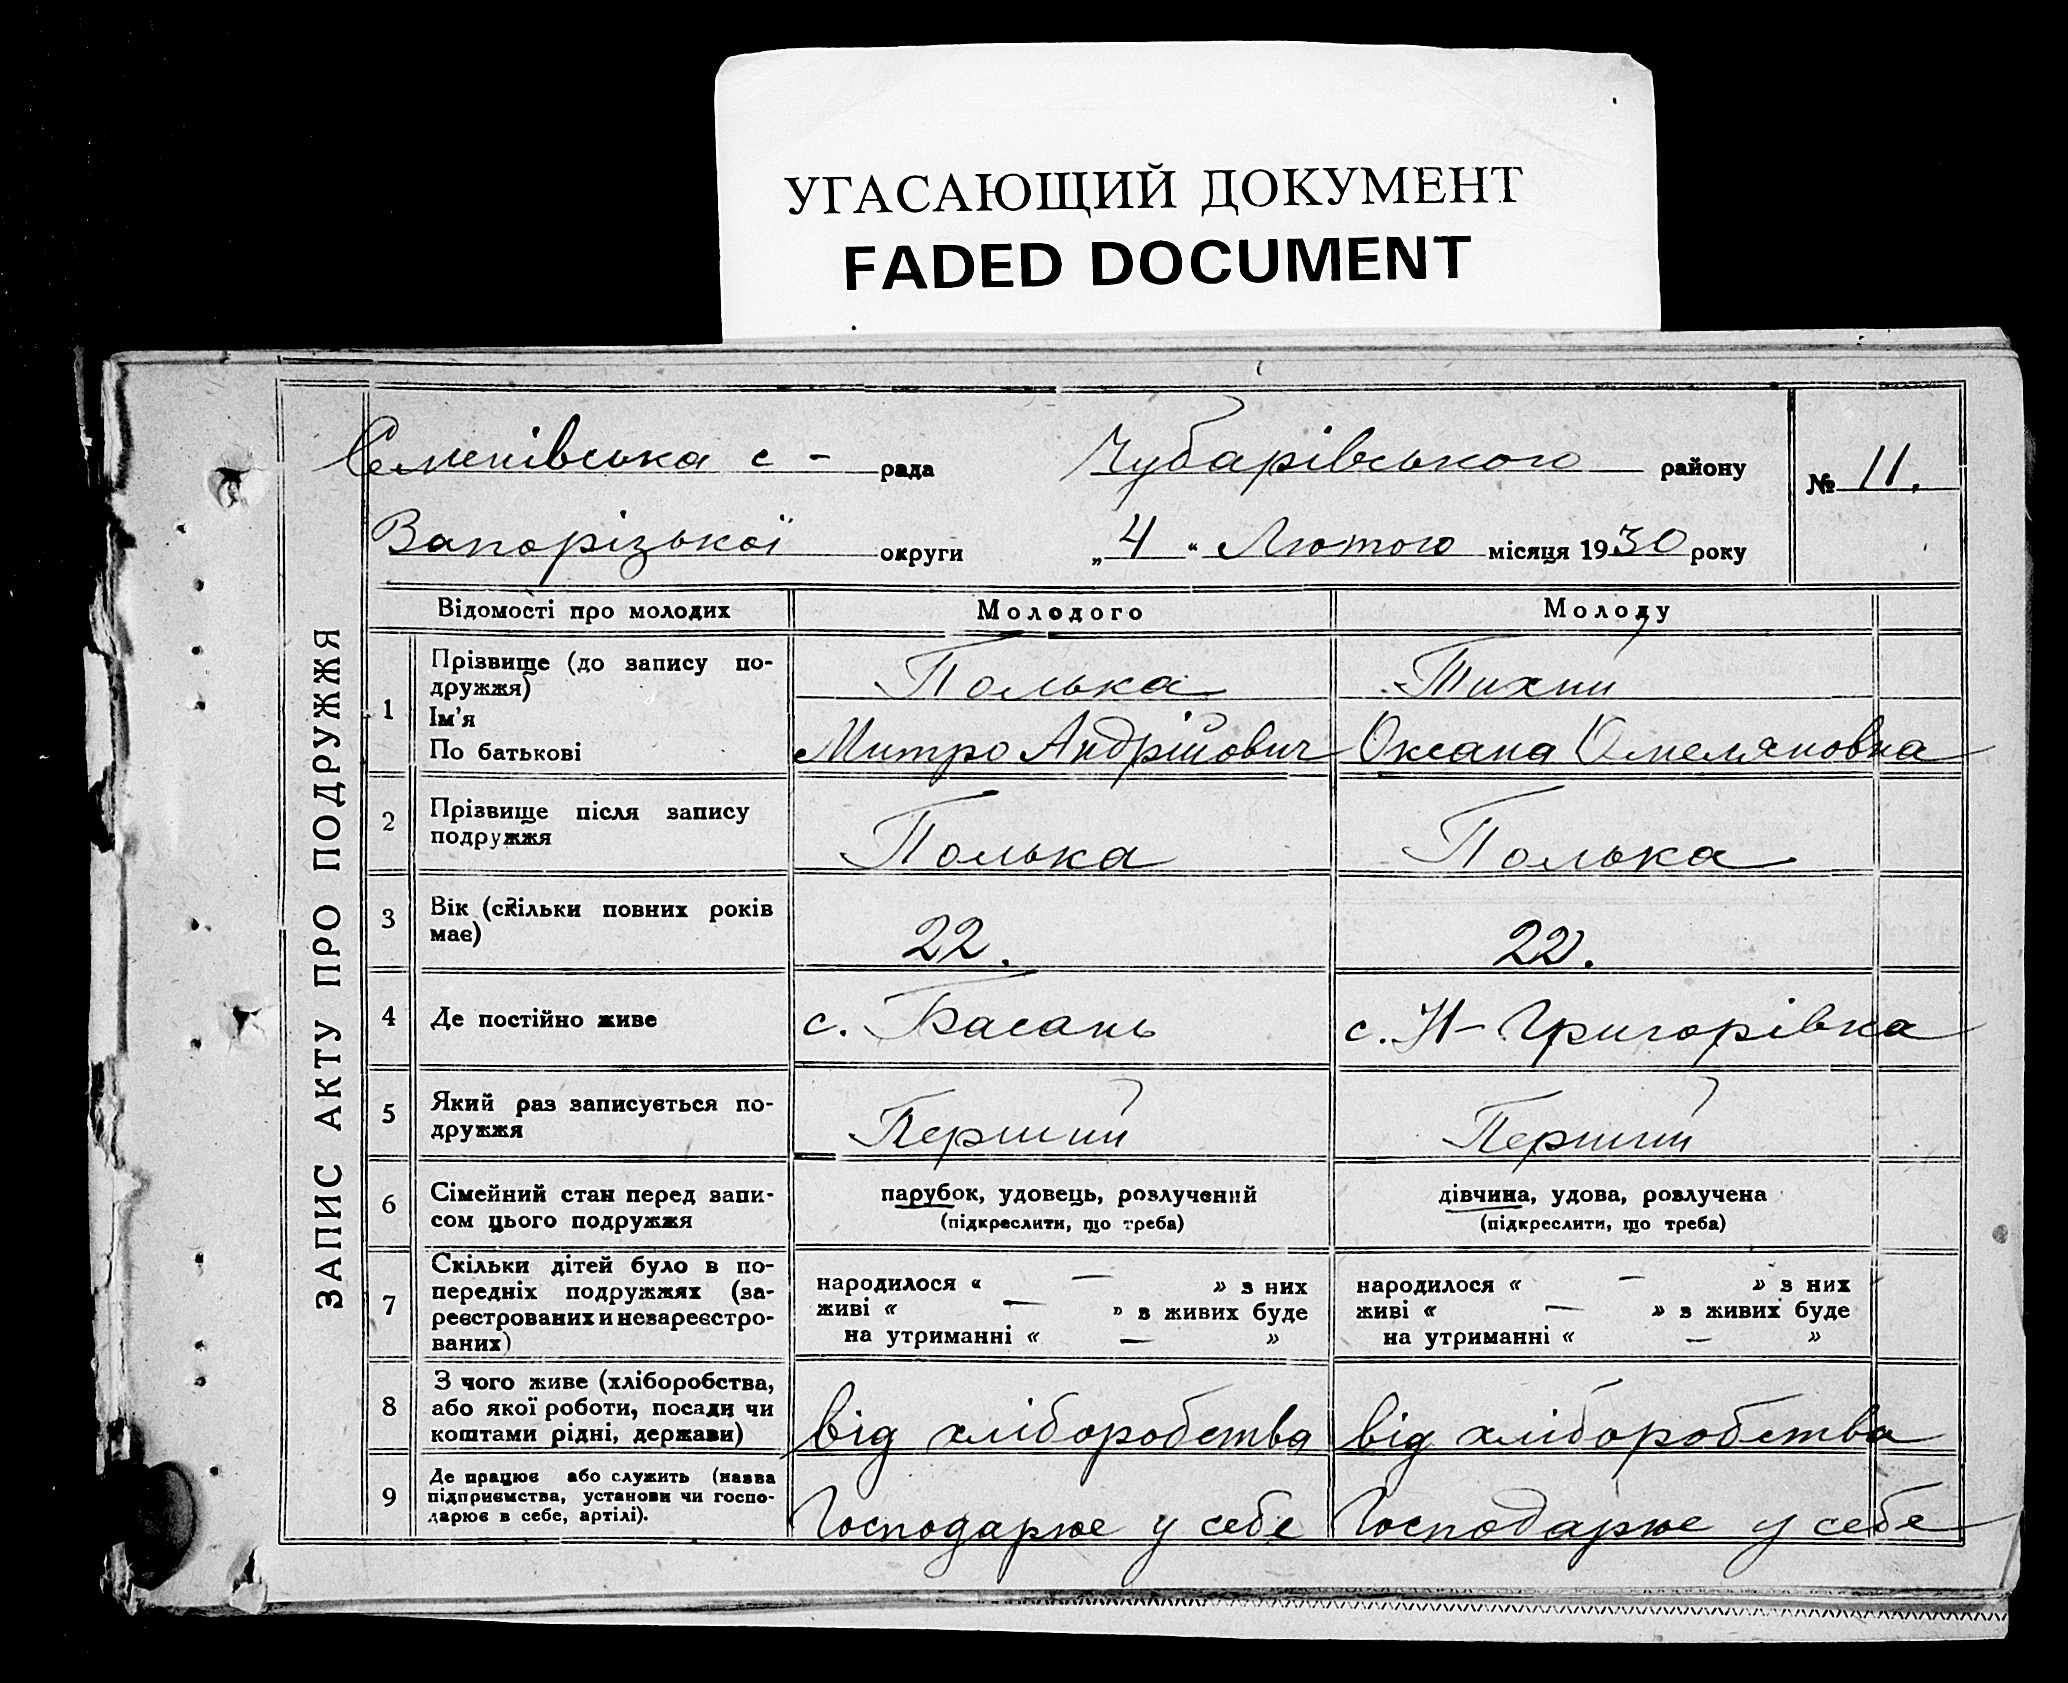 УГАСАЮЩИЙ ДОКУМЕНТ
FADED DOCUMENT
ЗАПИС АКТУ ПРО ПОДРУЖЖЯ
Семенівська с - рада Чубарівського району № 11.
Запорізької округи „4“ Лютого місяця 1930 року
Відомості про молодих Молодого Молоду
1 Прізвище (до запису по-
дружжя) Полька Тихий
Ім'я
По батькові Митро Андрійович Оксана Омеляновна
2 Прізвище після запису
подружжя Полька Полька
3 Вік (скільки повних років
має) 22. 22.
4 Де постійно живе с. Басань с. Н-Григорівка
5 Який раз записується по-
дружжя Перший Перший
6 Сімейний стан перед запи-
сом цього подружжя парубок, удовець, розлучений дівчина, удова, розлучена
(підкреслити, що треба) (підкреслити, що треба)
7 Скільки дітей було в по-
передніх подружжях (за-
реєстрованих и незареєстро-
ваних)
народилося « — » з них народилося « — » з них
живі « — » з живих буде живі « — » з живих буде
на утриманні « — » на утриманні « — »
8 З чого живе (хліборобства,
або якої роботи, посади чи
коштами рідні, держави) від хліборобства від хліборобства
9 Де працює або служить (назва
підприємства, установи чи госпо-
дарює в себе, артілі). Господарює у себе Господарює у себе